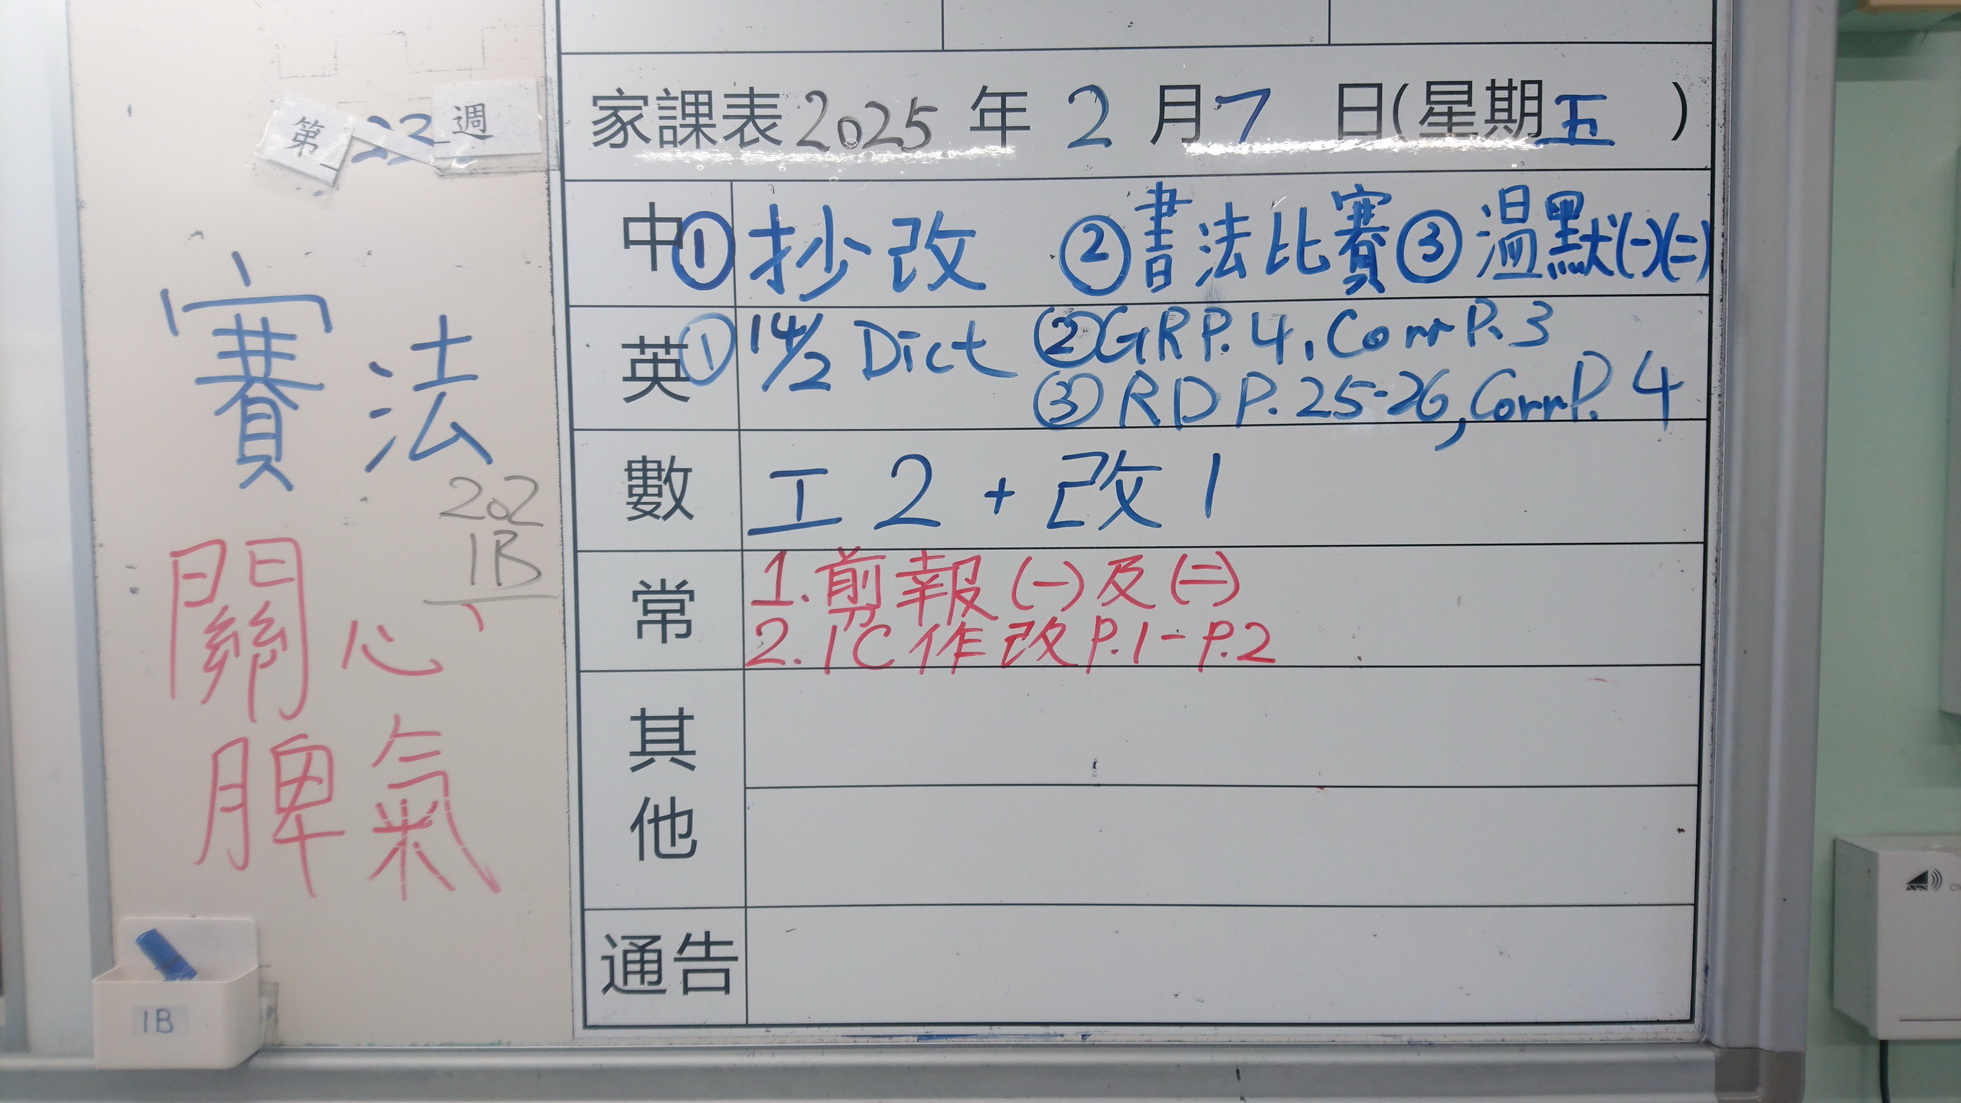 第 23 週
賽 法
202
1B
關 心
脾 氣
1B
家課表 2025 年 2 月 7 日(星期五 )
中 ① 抄改 ② 書法比賽 ③ 溫默(一)(二)
英 ① 14/2 Dict ② GR P.4, Corr P.3
③ RD P.25-26, Corr P.4
數 工 2 + 改 1
常 1. 剪報 (一) 及 (二)
2. IC 作改 P.1 - P.2
其他
通告